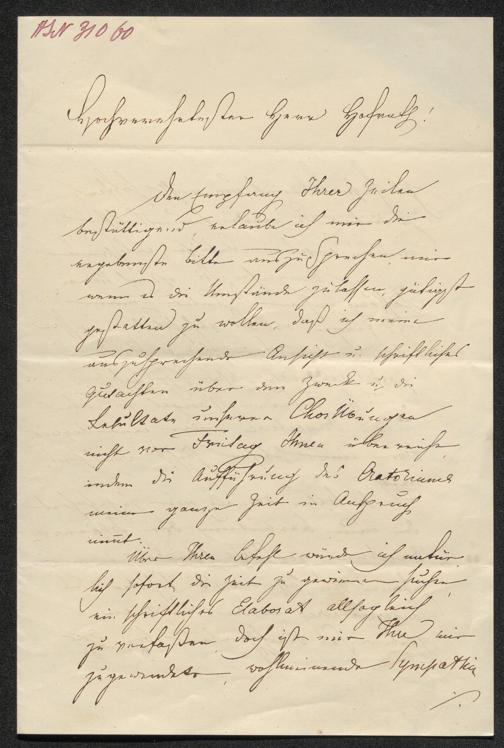 ASN 310 60
Hochverehrtester Herr Hofrath!
Den Empfang Ihrer Zeilen
bestättigend, erlaube ich mir die
ergebenste bitte auszusprechen, mir
wenn es die Umstände zulassen, gütigst
gestatten zu wollen, daß ich meine
auszusprechende Ansicht u. schriftliches
Gutachten über den Zweck u. die
Resultate unserer Chor Übungen
nicht vor Freitag Ihnen überreiche,
indem die Aufführung des Oratoriums
meine ganze Zeit in Anspruch
nimt.
Über Ihren befehl würde ich natür
lich sofort die Zeit zu gewinnen suchen,
ein schriftliches Elaborat allsogleich
zu verfaßen, doch ist mir Ihre mir
zugewendete, wohlmeinende Sympathie